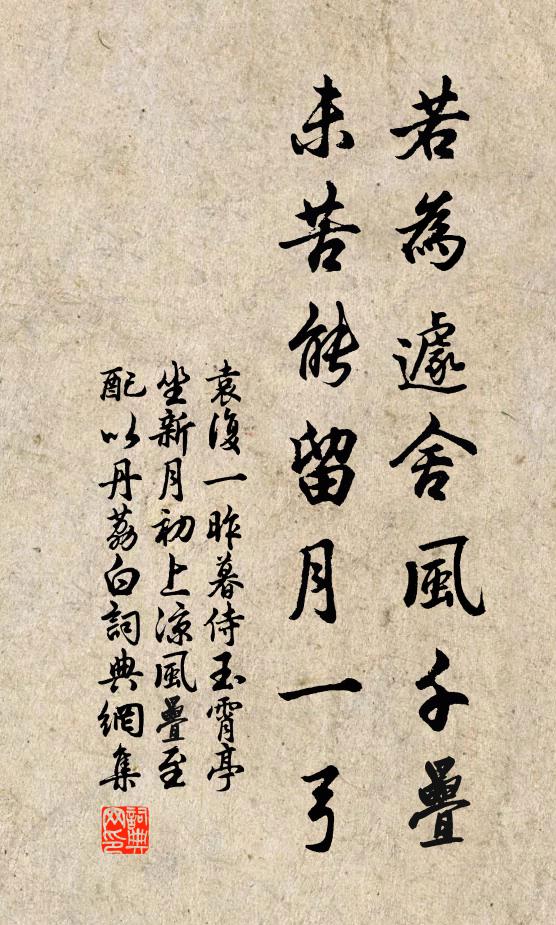 若為遽舍風千疊
未苦能留月一弓
袁復一昨暮侍玉霄亭
坐新月初上涼風疊至
配以丹荔白詞典網集
詞典
网印